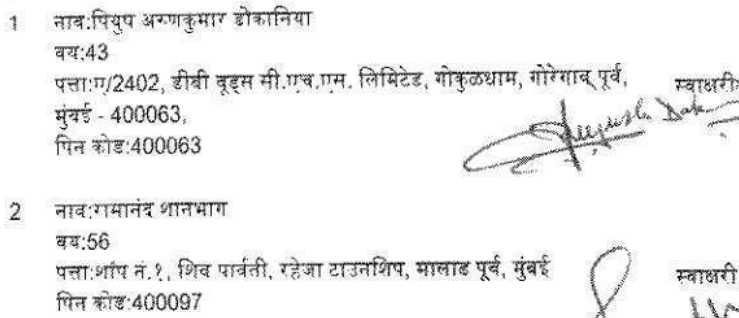 1 नाव:पियुष अरुणकुमार डोकानिया
वय:43
पत्ता:ए/2402, डीबी वूड्स सी.एच.एस. लिमिटेड, गोकुळधाम, गोरेगाव् पूर्व,
स्वाक्षरी
मुंबई - 400063,
पिन कोड:400063
2 नाव:रामानंद शानभाग
वय:56
पत्ता:शॉप नं.१, शिव पार्वती, रहेजा टाउनशिप, मालाड पूर्व, मुंबई
स्वाक्षरी
पिन कोड:400097